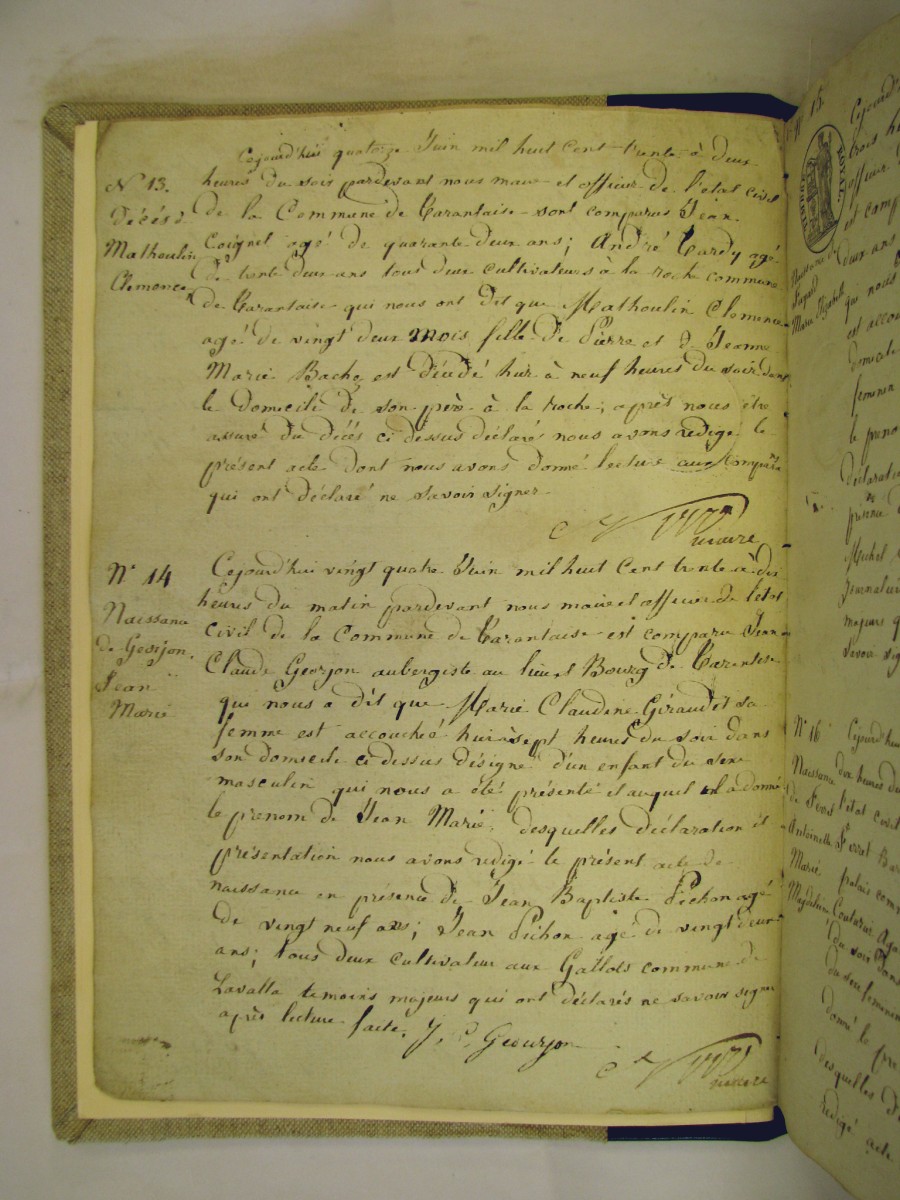 Cejourd'hui quatorze Juin mil huit cent trente à deux
N° 13.
heures du soir pardevant nous maire et officier de l'état civil
Décés
de la Commune de Tarantaise sont comparus Jean
Mathoulin
Clemence
Coignet agé de quarante deux ans; André Tardy agé
de trente deux ans tous deux cultivateurs à la roche commune
de Tarantaise qui nous ont dit que Mathoulin Clemence
agé de vingt deux mois fille de Pierre et de Jeanne
Marie Bache est décédé hier à neuf heures du soir dans
le domicile de son père à la roche; après nous être
assuré du décés ci dessus déclaré nous avons redigé le
présent acte dont nous avons donné lecture aux Compnts
qui ont déclaré ne savoir signer
maire
N° 14
Naissance
de Georjon
Jean
Marie
Cejourd'hui vingt quatre Juin mil huit Cent trente à dix
heures du matin pardevant nous maire et officier de l'état
civil de la Commune de Tarantaise est comparu Jean
Claude Georjon aubergiste au lieu et Bourg de Tarentaise
qui nous a dit que Marie Claudine Giraudet sa
femme est accouchée hier à sept heures du soir dans
son domicile ci dessus désigné d'un enfant du sexe
masculin qui nous a été présenté et auquel il a donné
le prenom de Jean Marie, desquelles déclaration et
présentation nous avons redigé le présent acte de
naissance en présence de Jean Baptiste Pichon agé
de vingt neuf ans; Jean Pichon agé de vingt deux
ans; tous deux cultivateur aux Gallots commune de
Lavalla temoins majeurs qui ont déclarés ne savoir signer
après lecture faite. J. C. Geourjon
maire
N° 15.
Cejourd'h
trois h
officier
et comp
deux ans
Naissance de
Marie Elizabeth
qui nous
est accou
domicile
feminin
le preno
déclaration
présence
Michel
Journalier
majeurs q
savoir sig
N° 16
Cejourd'hui
Naissance
dix heures du
l'état civil
Antoinette
Marie
Magdelaine
Couturier
du soir dans
du sexe feminin
donné le pre
desquelles d
redigé acte